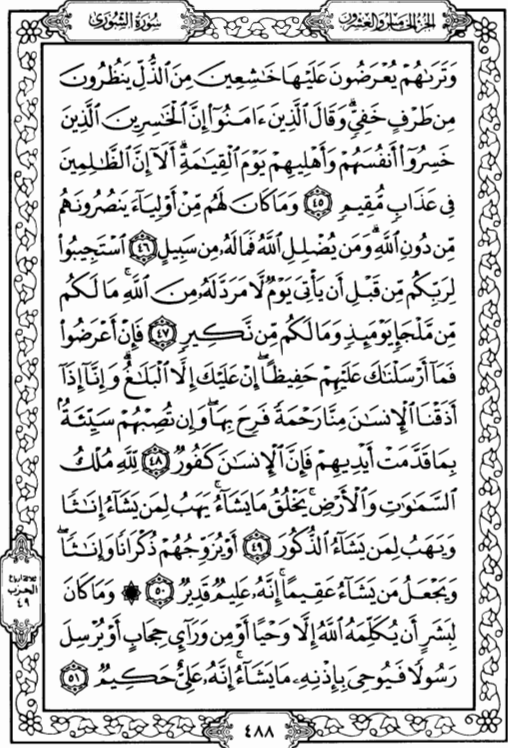 سورة الشورى
الجزء الخامس والعشرون
وَتَرَىٰهُمْ يُعْرَضُونَ عَلَيْهَا خَٰشِعِينَ مِنَ ٱلذُّلِّ يَنظُرُونَ
مِن طَرْفٍ خَفِىٍّۗ وَقَالَ ٱلَّذِينَ ءَامَنُوٓا۟ إِنَّ ٱلْخَٰسِرِينَ ٱلَّذِينَ
خَسِرُوٓا۟ أَنفُسَهُمْ وَأَهْلِيهِمْ يَوْمَ ٱلْقِيَٰمَةِۗ أَلَآ إِنَّ ٱلظَّٰلِمِينَ
فِى عَذَابٍ مُّقِيمٍ ٤٥ وَمَا كَانَ لَهُم مِّنْ أَوْلِيَآءَ يَنصُرُونَهُم
مِّن دُونِ ٱللَّهِۗ وَمَن يُضْلِلِ ٱللَّهُ فَمَا لَهُۥ مِن سَبِيلٍ ٤٦ ٱسْتَجِيبُوا۟
لِرَبِّكُم مِّن قَبْلِ أَن يَأْتِىَ يَوْمٌ لَّا مَرَدَّ لَهُۥ مِنَ ٱللَّهِۚ مَا لَكُم
مِّن مَّلْجَإٍ يَوْمَئِذٍ وَمَا لَكُم مِّن نَّكِيرٍ ٤٧ فَإِنْ أَعْرَضُوا۟
فَمَآ أَرْسَلْنَٰكَ عَلَيْهِمْ حَفِيظًاۖ إِنْ عَلَيْكَ إِلَّا ٱلْبَلَٰغُۗ وَإِنَّآ إِذَآ
أَذَقْنَا ٱلْإِنسَٰنَ مِنَّا رَحْمَةً فَرِحَ بِهَاۖ وَإِن تُصِبْهُمْ سَيِّئَةٌۢ
بِمَا قَدَّمَتْ أَيْدِيهِمْ فَإِنَّ ٱلْإِنسَٰنَ كَفُورٌ ٤٨ لِّلَّهِ مُلْكُ
ٱلسَّمَٰوَٰتِ وَٱلْأَرْضِۚ يَخْلُقُ مَا يَشَآءُۚ يَهَبُ لِمَن يَشَآءُ إِنَٰثًا
وَيَهَبُ لِمَن يَشَآءُ ٱلذُّكُورَ ٤٩ أَوْ يُزَوِّجُهُمْ ذُكْرَانًا وَإِنَٰثًاۖ
وَيَجْعَلُ مَن يَشَآءُ عَقِيمًاۚ إِنَّهُۥ عَلِيمٌ قَدِيرٌ ٥٠ ۞ وَمَا كَانَ
لِبَشَرٍ أَن يُكَلِّمَهُ ٱللَّهُ إِلَّا وَحْيًا أَوْ مِن وَرَآئِ حِجَابٍ أَوْ يُرْسِلَ
رَسُولًا فَيُوحِىَ بِإِذْنِهِۦ مَا يَشَآءُۚ إِنَّهُۥ عَلِىٌّ حَكِيمٌ ٥١
ثلاثة أرباع
الحزب
٤٩
٤٨٨